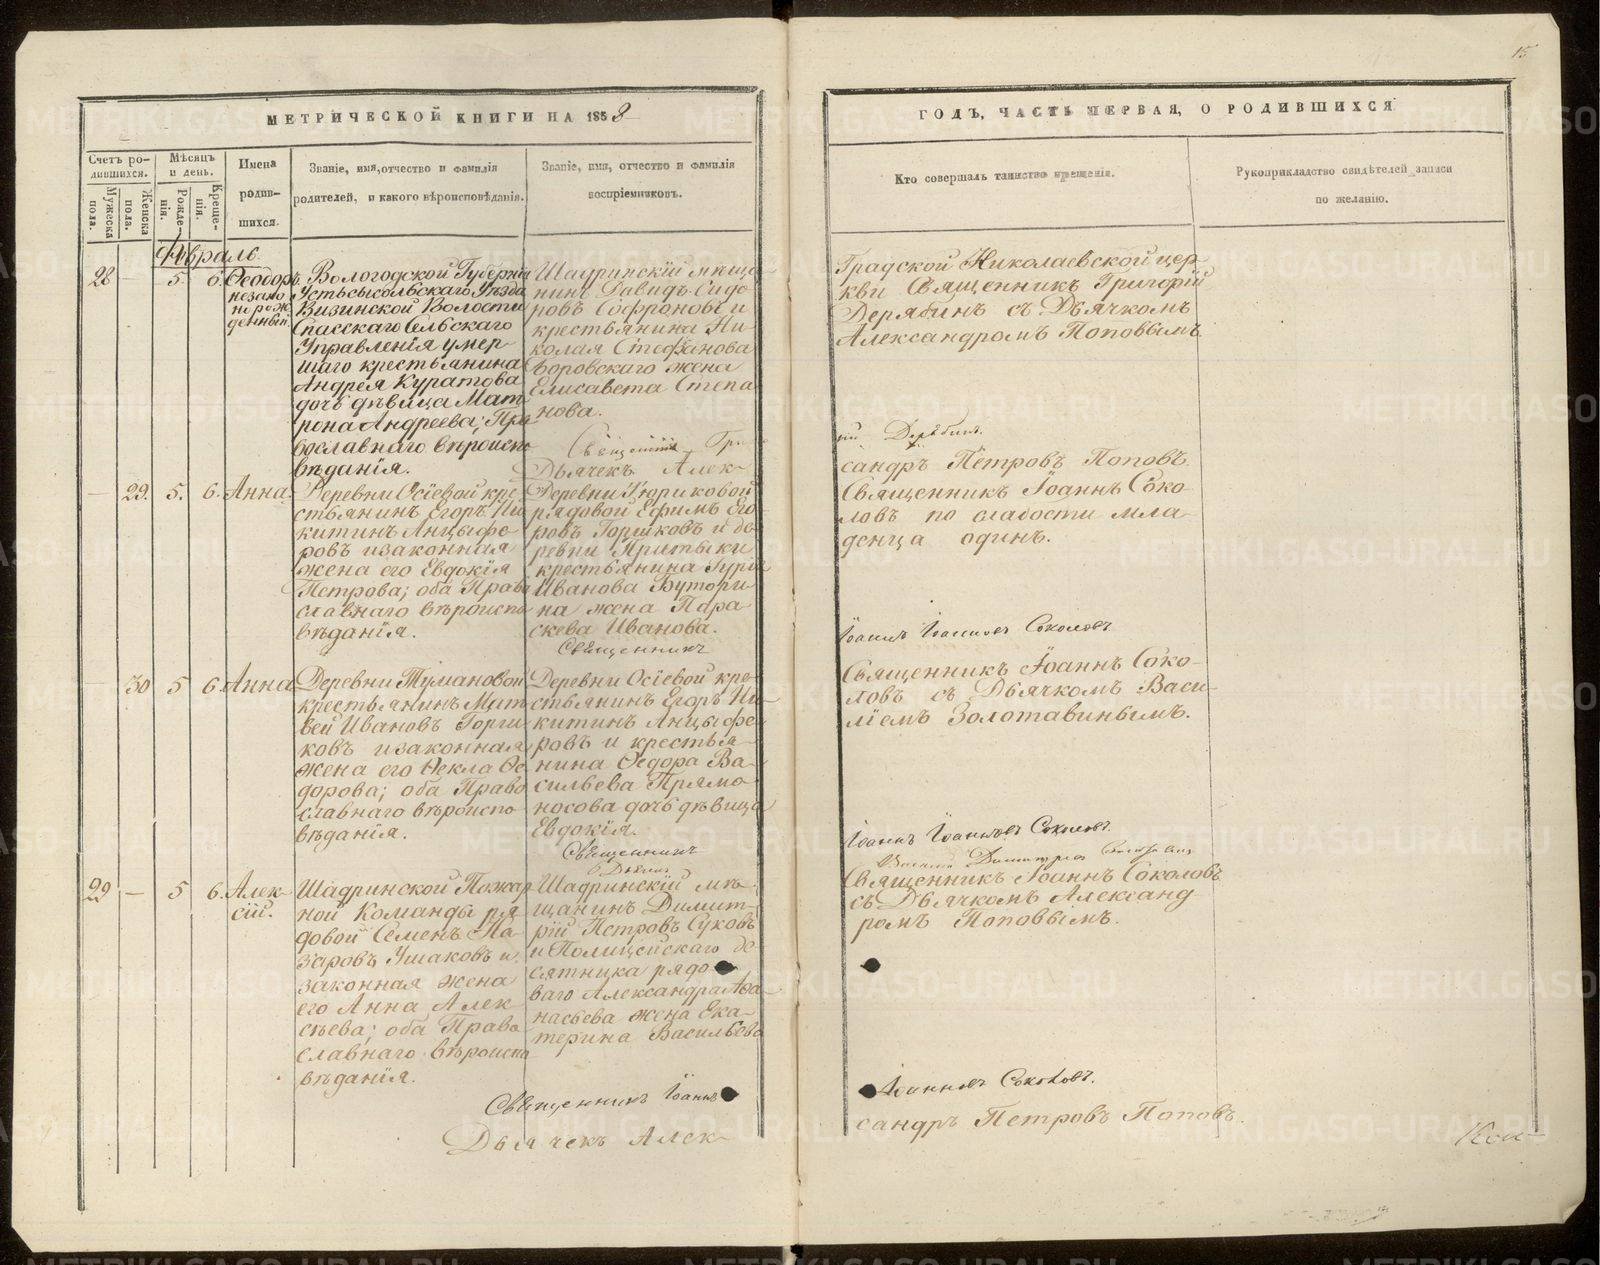 15
МЕТРИЧЕСКОЙ КНИГИ НА 1858
ГОДЪ, ЧАСТЬ ПЕРВАЯ, О РОДИВШИХСЯ
Счетъ ро-
дившихся.
Мужеска
пола.
Женска
пола.
Мѣсяцъ
и день.
Рожде-
нія.
Креще-
нія.
Имена
родив-
шихся.
Званіе, имя, отчество и фамилія
родителей, и какого вѣроисповѣданія.
Званіе, имя, отчество и фамилія
воспріемниковъ.
Кто совершалъ таинство крещенія.
Рукоприкладство свидѣтелей записи
по желанію.
Февраль
28 — 5. 6. Ѳеодоръ
незако
норож
денный.
Вологодской Губерніи
Устьсысольскаго Уѣзда
Визинской Волости
Спасскаго Сельскаго
Управленія умер-
шаго крестьянина
Андрея Куратова
дочь дѣвица Мат
рона Андреева; Пра
вославнаго вѣроиспо
вѣданія.
Шадринскій мѣща-
нинъ Давидъ Сидо
ровъ Софроновъ и
крестьянина Ни-
колая Стефанова
Боровскаго жена
Елисавета Степа
нова.
Священникъ Гри-
Дьячекъ Алек-
Градской Николаевской цер-
кви Священникъ Григорій
Дерябинъ съ Дьячкомъ
Александромъ Поповымъ.
рій Дерябинъ.
сандръ Петровъ Поповъ.
— 29. 5. 6. Анна.
Деревни Осіевой кре
стьянинъ Егоръ Ни
китинъ Анцыфе
ровъ и законная
жена его Евдокія
Петрова; оба Право
славнаго вѣроиспо
вѣданія.
Деревни Юриковой
рядовой Ефимъ Его
ровъ Горшковъ и де-
ревни Притыки
крестьянина Гурія
Иванова Бутори-
на жена Пара
скева Иванова.
Священникъ
Священникъ Іоаннъ Соко-
ловъ по слабости мла-
денца одинъ.
Іоаннъ Іоанновъ Соколовъ.
— 30 5 6. Анна
Деревни Тумановой
крестьянинъ Мат
вей Ивановъ Горш
ковъ и законная
жена его Ѳекла Ѳе
дорова; оба Право
славнаго вѣроиспо
вѣданія.
Деревни Осіевой кре-
стьянинъ Егоръ Ни-
китинъ Анцыфе-
ровъ и крестья-
нина Ѳедора Ва-
сильева Прямо-
носова дочь дѣвица
Евдокія.
Священникъ
Дьячекъ
Священникъ Іоаннъ Соко-
ловъ съ Дьячкомъ Васи-
ліемъ Золотавинымъ.
Іоаннъ Іоанновъ Соколовъ.
Василій Димитріевъ
29 — 5 6. Алек-
сій.
Шадринской Пожар
ной Команды ря
довой Семенъ На-
заровъ Ушаковъ и
законная жена
его Анна Алек
сѣева; оба Право
славнаго вѣроиспо
вѣданія.
Шадринскій мѣ-
щанинъ Димит-
рій Петровъ Суковъ
и Полицейскаго де-
сятника рядо
ваго Александра Аѳа-
насьева жена Ека-
терина Васильева
Священникъ Іоаннъ Соколовъ
съ Дьячкомъ Александ
ромъ Поповымъ.
Священникъ Іоаннъ
Іоанновъ Соколовъ.
Дьячекъ Алек-
сандръ Петровъ Поповъ.